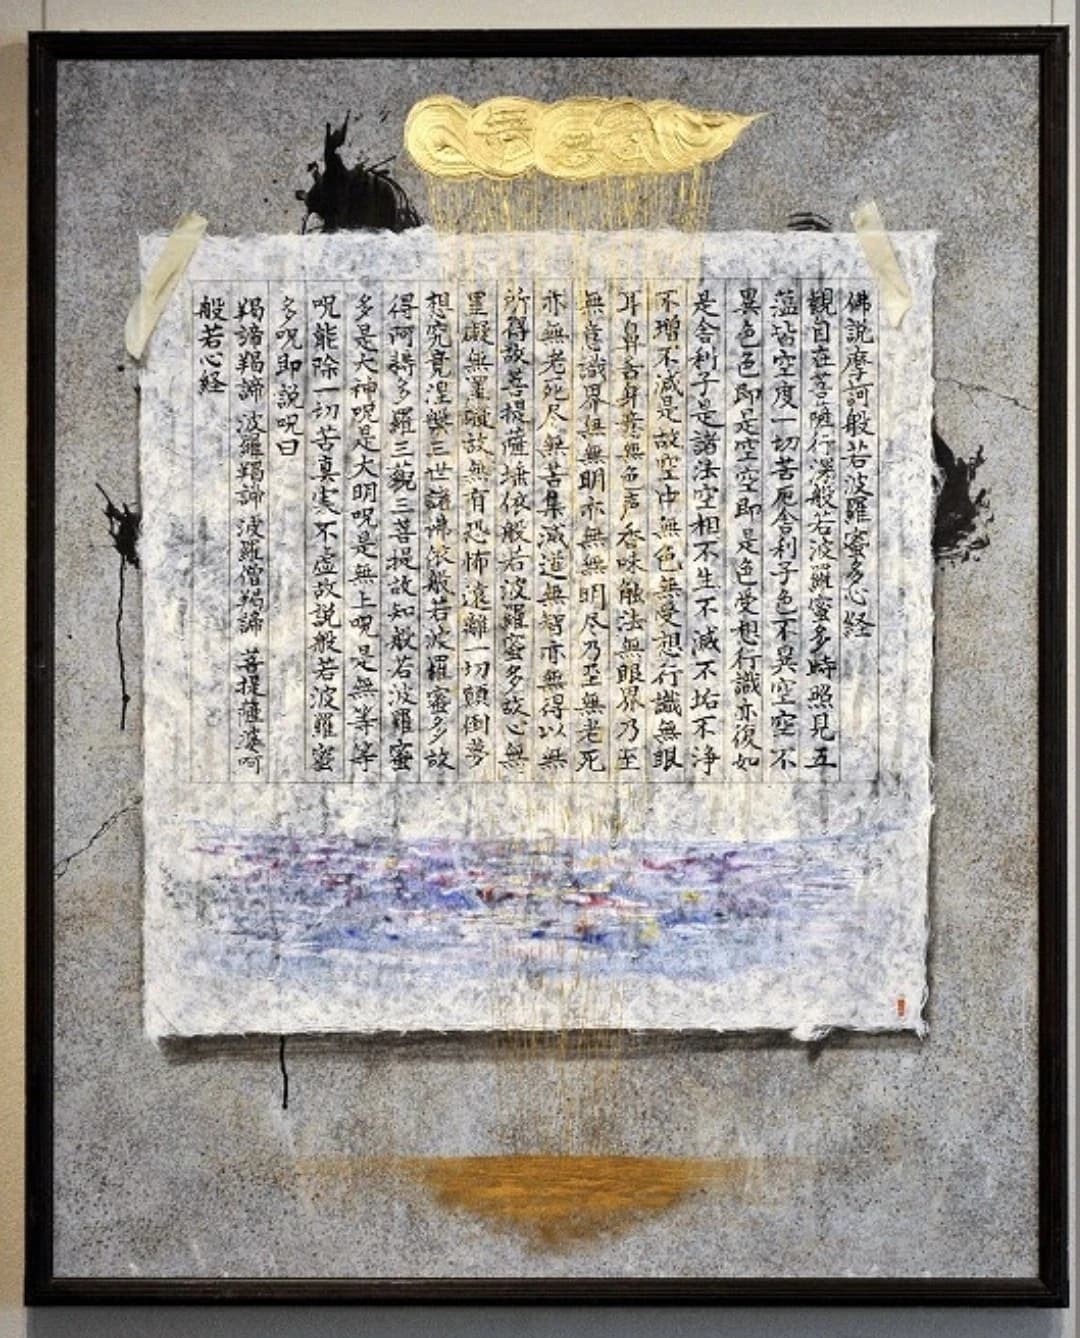 佛説摩訶般若波羅蜜多心経
觀自在菩薩行深般若波羅蜜多時照見五
蕰皆空度一切苦厄舎利子色不異空空不
異色色即是空空即是色受想行識亦復如
是舎利子是諸法空相不生不滅不垢不浄
不増不減是故空中無色無受想行識無眼
耳鼻舌身意無色声香味触法無眼界乃至
無意識界無無明亦無無明尽乃至無老死
亦無老死尽無苦集滅道無智亦無得以無
所得故菩提薩埵依般若波羅蜜多故心無
罣礙無罣礙故無有恐怖遠離一切顛倒夢
想究竟涅槃三世諸佛依般若波羅蜜多故
得阿耨多羅三藐三菩提故知般若波羅蜜
多是大神呪是大明呪是無上呪是無等等
呪能除一切苦真実不虚故説般若波羅蜜
多呪即説呪曰
羯諦羯諦 波羅羯諦 波羅僧羯諦 菩提薩婆呵
般若心経